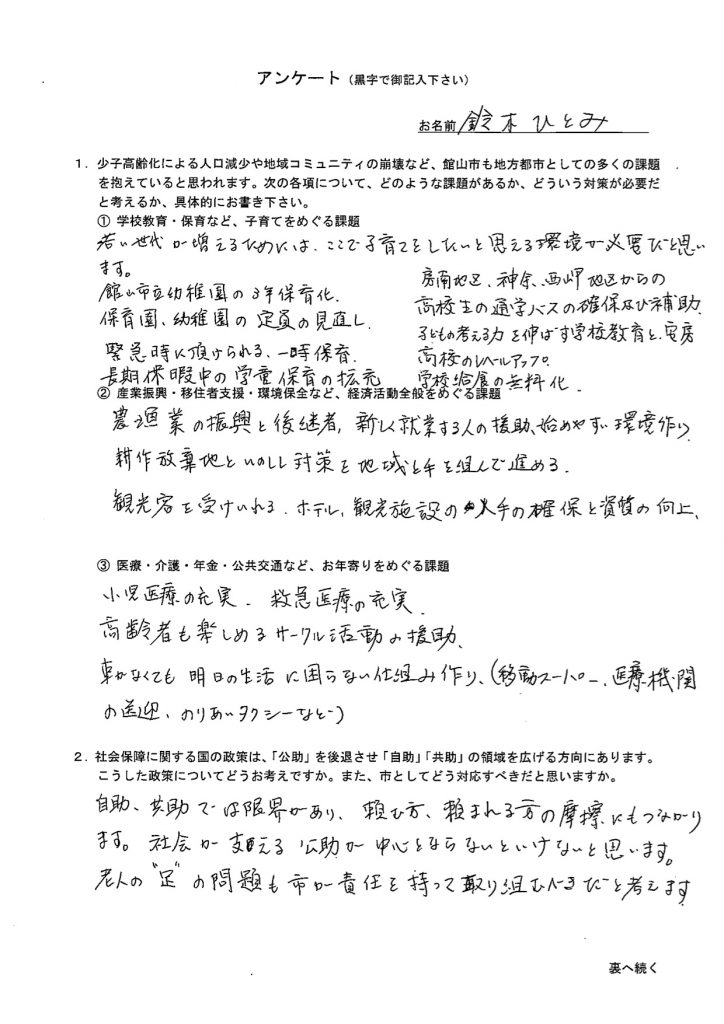 アンケート（黒字で御記入下さい）
お名前 鈴木ひとみ
１．少子高齢化による人口減少や地域コミュニティの崩壊など、館山市も地方都市としての多くの課題
を抱えていると思われます。次の各項について、どのような課題があるか、どういう対策が必要だ
と考えるか、具体的にお書き下さい。
① 学校教育・保育など、子育てをめぐる課題
若い世代が増えるためには、ここで子育てをしたいと思える環境が必要だと思い
ます。
館山市立幼稚園の3年保育化、
保育園、幼稚園の定員の見直し、
緊急時に預けられる、一時保育、
長期休暇中の学童保育の拡充
房南地区、神余、西岬地区からの
高校生の通学バスの確保及び補助、
子どもの考える力を伸ばす学校教育と、安房
高校のレベルアップ。
学校給食の無料化、
② 産業振興・移住者支援・環境保全など、経済活動全般をめぐる課題
農漁業の振興と後継者、新しく就業する人の援助、始めやすい環境作り、
耕作放棄地といのしし対策を地域と手を組んで進める、
観光客を受けいれる、ホテル、観光施設の人手の確保と資質の向上、
③ 医療・介護・年金・公共交通など、お年寄りをめぐる課題
小児医療の充実、救急医療の充実、
高齢者も楽しめるサークル活動の援助、
車がなくても明日の生活に困らない仕組み作り、（移動スーパー、医療機関
の送迎、のりあいタクシーなど）
２．社会保障に関する国の政策は、「公助」を後退させ「自助」「共助」の領域を広げる方向にあります。
こうした政策についてどうお考えですか。また、市としてどう対応すべきだと思いますか。
自助、共助では限界があり、頼む方、頼まれる方の摩擦にもつながり
ます。社会が支える公助が中心とならないといけないと思います。
老人の“足”の問題も市が責任を持って取り組むべきだと考えます
裏へ続く